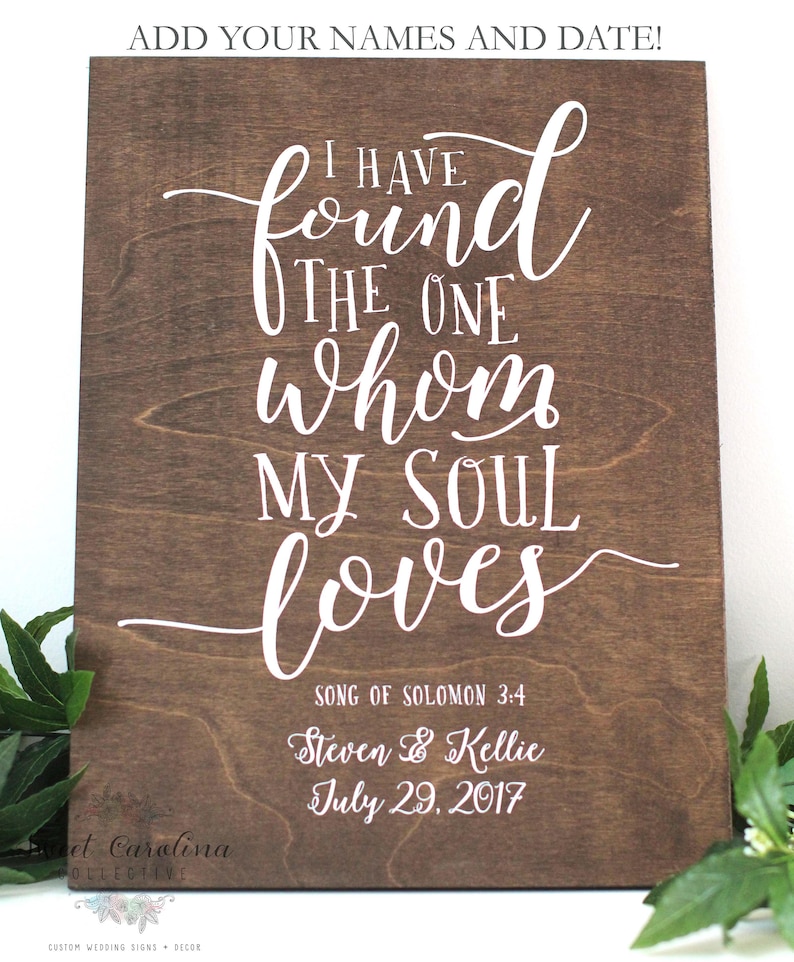 ADD YOUR NAMES AND DATE!
I HAVE
found
THE ONE
whom
MY SOUL
loves
SONG OF SOLOMON 3:4
Steven & Kellie
July 29, 2017
Sweet Carolina
COLLECTIVE
CUSTOM WEDDING SIGNS + DECOR